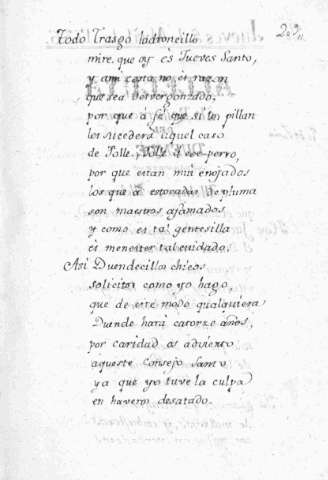 209
Todo Trasgo ladroncillo
mire que oy es Jueves Santo,
y que sea desvergonzado,
por que a fe que si los pillan
les sucederá aquel caso
de Tolle, Tolle a ese perro,
por que estan mui enojados
los que a estocadas de pluma
son maestros afamados
y como es tal gentesilla
es menester tal cuidado.
Asi Duendecillos chicos
solicitos como yo hago,
que de este modo qualquiera
Duende hará catorze años,
por caridad os advierto
aqueste Consejo Santo
ya que yo tuve la culpa
en haveros desatado.